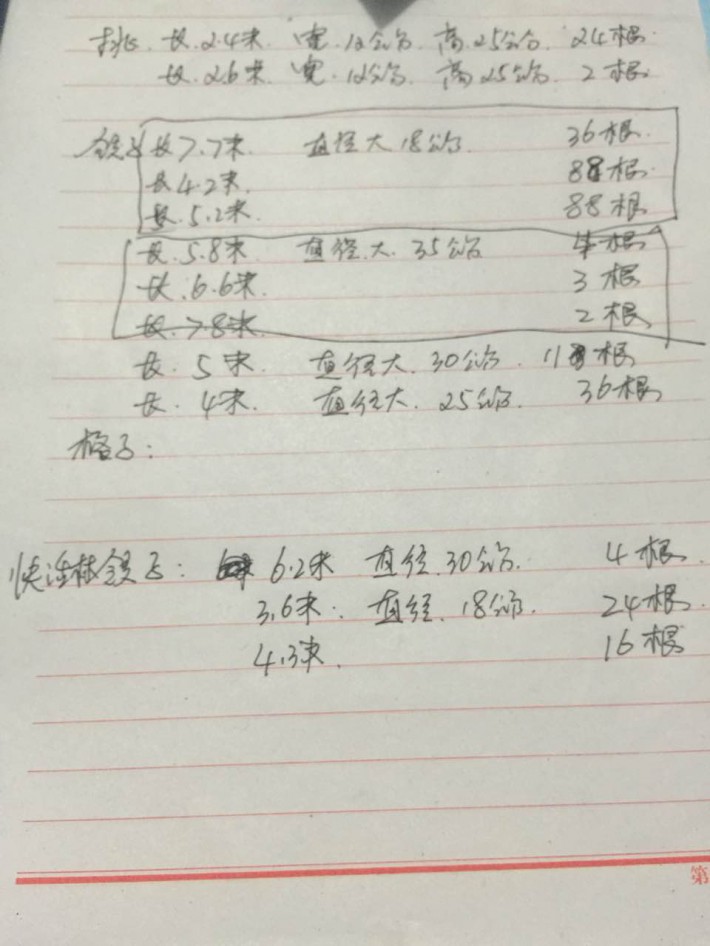 挑. 长.2.4米. 宽.12公分. 高.25公分. 24根.
长.2.6米. 宽.12公分. 高25公分. 2根.
长7.7米. 直径大18公分. 36根.
长4.2米. 88根.
长.5.2米. 88根
长.5.8米 直径.大.35公分 4根
长.6.6米. 3根
长.7.8米. 2根
长. 5米. 直径大.30公分. 11根
长. 4米. 直径大.25公分. 36根
格子:
6.2米 直径.30公分. 4根.
3.6米. 直径.18公分. 24根.
4.3米. 16根
第